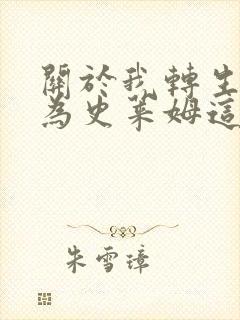 關於我轉生
為史萊姆這
朱雪璋